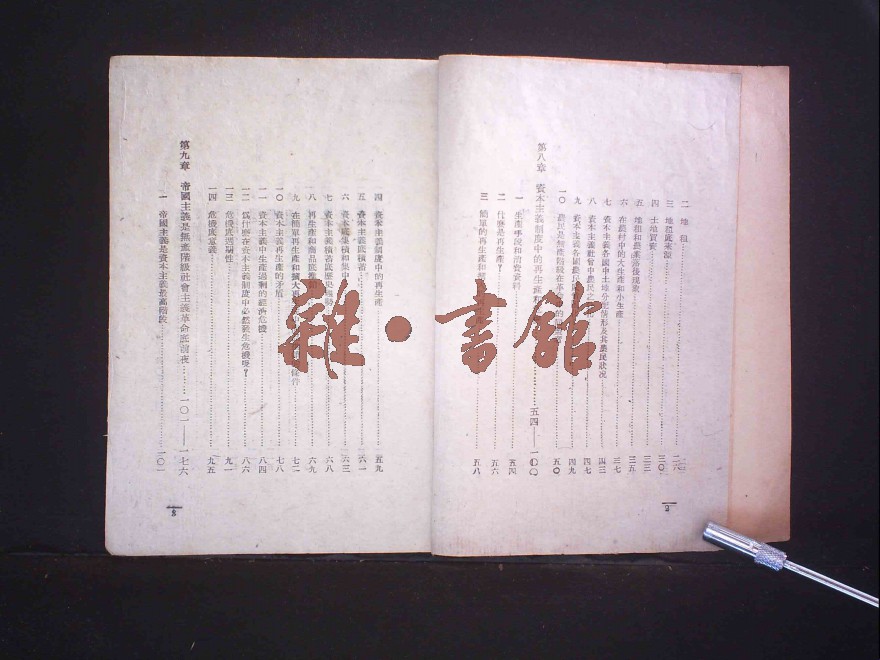 二 地租……二六
三 地租底来源……三〇
四 土地買賣……三三
五 地租和農業落後現象……三五
六 在農村中的大生產和小生產……三七
七 資本主義各國中土地分配情形及其農民狀况……四三
八 資本主義社會中農民之……四七
九 資本主義各國農民……四九
一〇 農民是無產階級在革命……的……五〇
第八章 資本主義制度中的再生產……五四——一〇〇
一 生產手段和消費資料……五四
二 什麼是再生產?……五六
三 簡單的再生產和……五八
2
四 資本主義制度中的再生產……五九
五 資本主義底積蓄……六一
六 資本底集積和集中……六三
七 資本主義積蓄底歷史……六八
八 再生產和商品底……六九
九 在簡單再生產和擴大再……條件……七二
一〇 資本主義再生產的矛盾……七八
一一 資本主義中生產過剩的經濟危機……八四
一二 爲什麼在資本主義制度中必然發生危機呢?……八六
一三 危機底週期性……九一
一四 危機底意義……九五
第九章 帝國主義是無產階級社會主義革命底前夜……一〇一——一七六
一 帝國主義是資本主義最高階段……一〇一
3
雜·書館